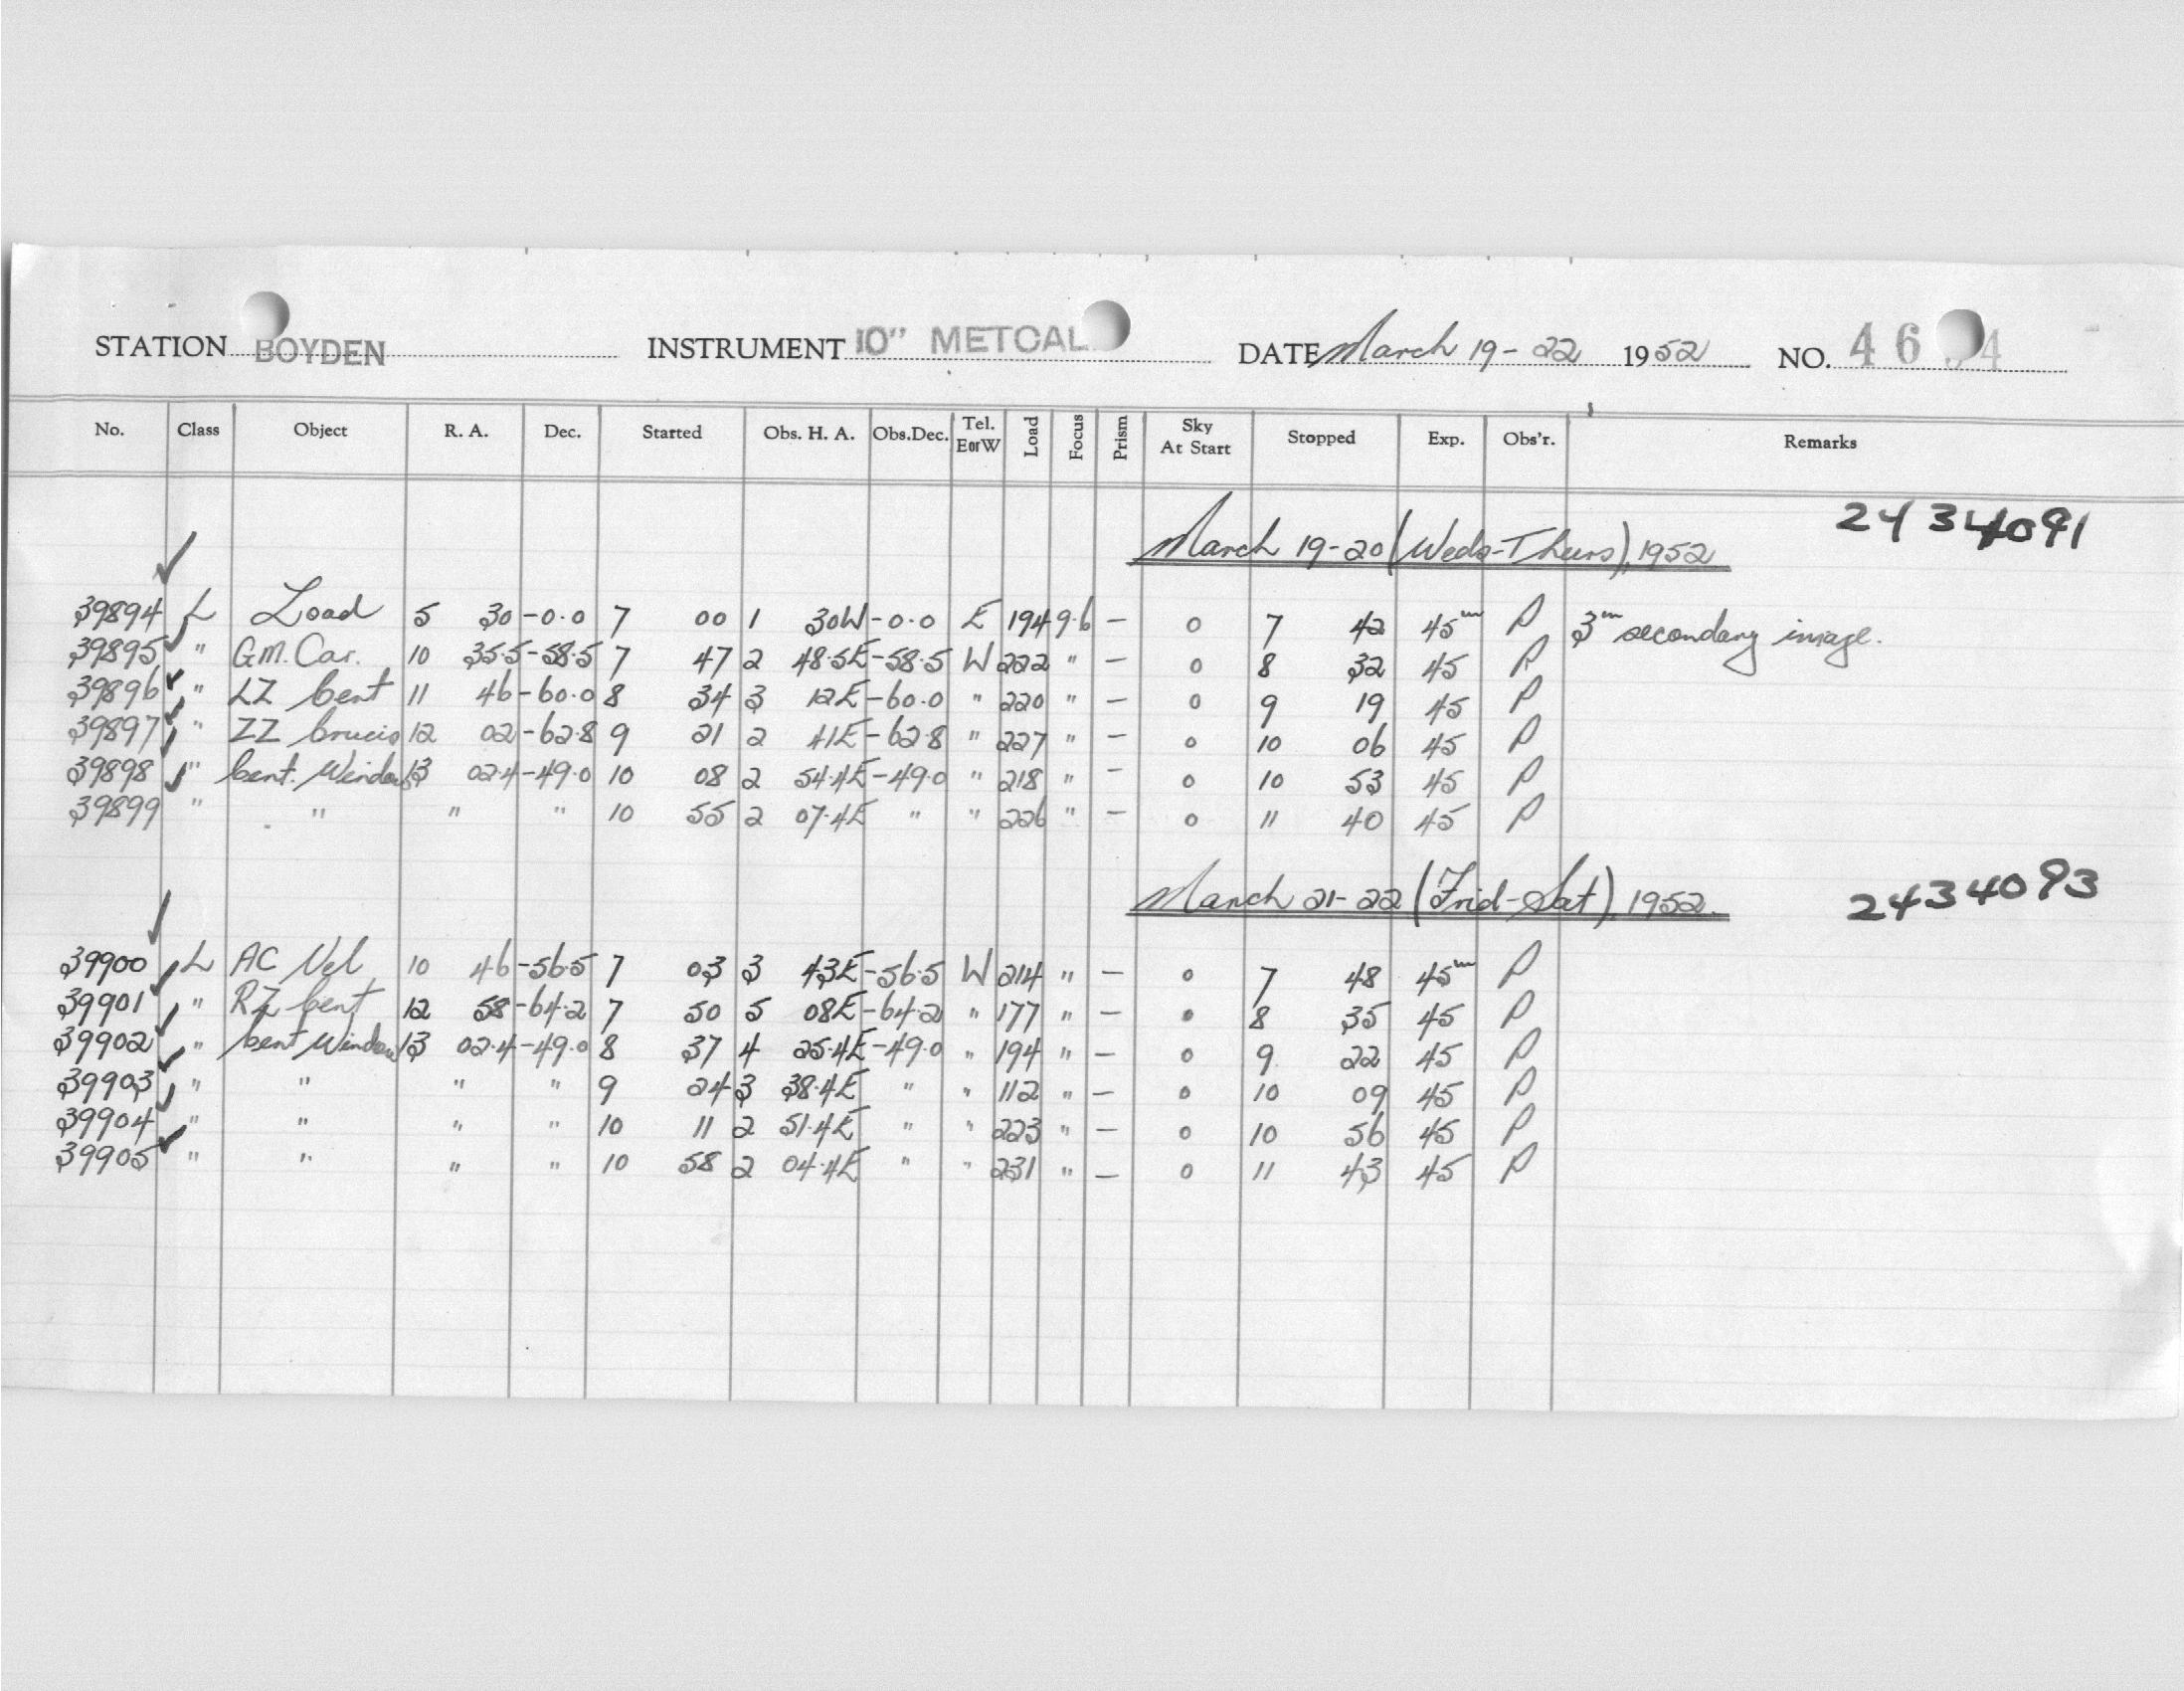 STATION BOYDEN INSTRUMENT 10" METCAL DATE March 19-22 1952 NO. 46 4
No. Class Object R. A. Dec. Started Obs. H. A. Obs.Dec. Tel. EorW Load Focus Prism Sky At Start Stopped Exp. Obs'r. Remarks
March 19-20 (Weds-Thurs), 1952 2434091
39894 L Load 5 30 -0.0 7 00 1 30W -0.0 E 194 9.6 — 0 7 42 45m P 3m secondary image.
39895 " G.M. Car. 10 35.5 -58.5 7 47 2 48.5E -58.5 W 222 " — 0 8 32 45 P
39896 " LZ Cent 11 46 -60.0 8 34 3 12E -60.0 " 220 " — 0 9 19 45 P
39897 " ZZ Crucis 12 02 -62.8 9 21 2 41E -62.8 " 227 " — 0 10 06 45 P
39898 " Cent. Window 13 02.4 -49.0 10 08 2 54.4E -49.0 " 218 " — 0 10 53 45 P
39899 " " " " 10 55 2 07.4E " " 226 " — 0 11 40 45 P
March 21-22 (Frid-Sat), 1952. 2434093
39900 L AC Vel 10 46 -56.5 7 03 3 43E -56.5 W 214 " — 0 7 48 45m P
39901 " RZ Cent 12 58 -64.2 7 50 5 08E -64.2 " 177 " — 0 8 35 45 P
39902 " Cent Window 13 02.4 -49.0 8 37 4 25.4E -49.0 " 194 " — 0 9 22 45 P
39903 " " " " 9 24 3 38.4E " " 112 " — 0 10 09 45 P
39904 " " " " 10 11 2 51.4E " " 223 " — 0 10 56 45 P
39905 " " " " 10 58 2 04.4E " " 231 " — 0 11 43 45 P